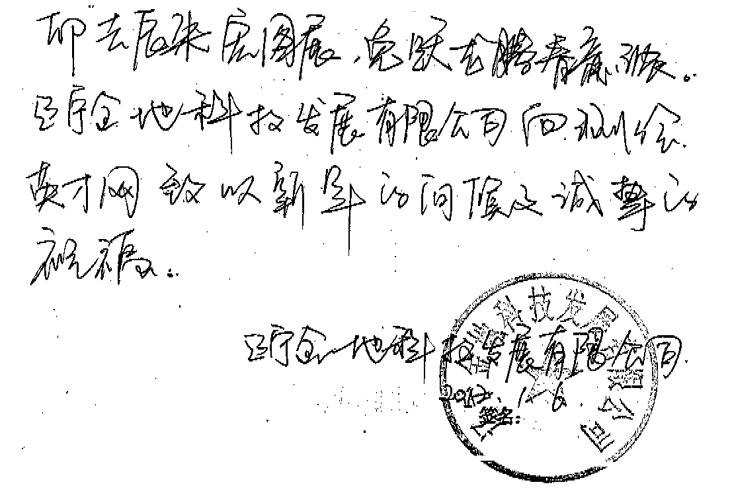 卯去辰来宏图展,兔跃龙腾春意浓。
辽宁金地科技发展有限公司向测绘
英才网致以新年的问候及诚挚的
祝福。
科技发展有限公司
辽宁金地科技发展有限公司
2012.1.6
签名: